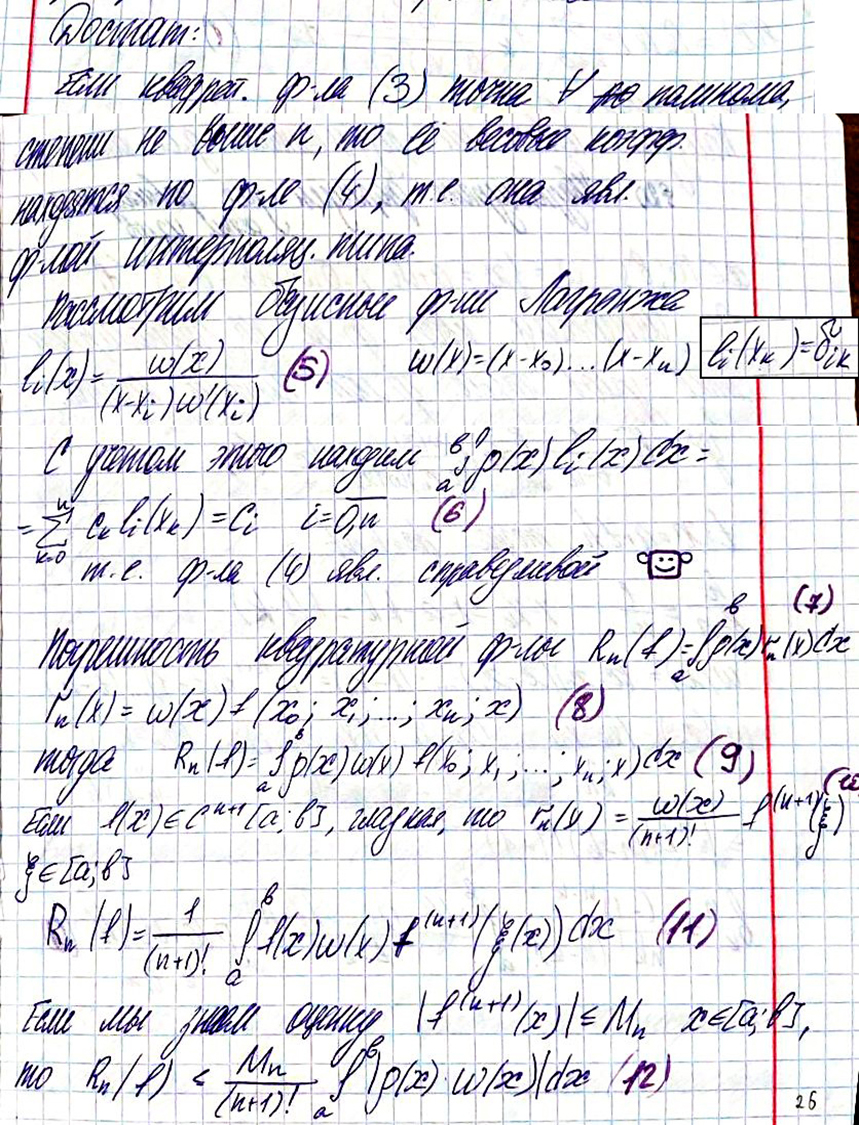 Достат:
Если квадрат. ф-ла (3) точна ∀ полинома,
степени не выше n, то её весовые коэфф.
находятся по ф-ле (4), т.е. она явл.
ф-лой интерполяц. типа.
Рассмотрим базисные ф-ии Лагранжа
li(x) = ω(x) / (x-xi)ω'(xi) (5) ω(x)=(x-x₀)...(x-xn) li(xk)=δik
С учётом этого находим ∫ₐᵇ ρ(x) li(x) dx =
= ∑ₖ₌₀ⁿ cк li(xк) = Ci i=0,n (6)
т.е. ф-ла (4) явл. справедливой
Погрешность квадратурной ф-лы Rn(f)=∫ₐᵇ ρ(x) rn(x) dx (7)
rn(x) = ω(x) f(x₀; x₁; ...; xn; x) (8)
тогда Rn(f)=∫ₐᵇ ρ(x) ω(x) f(x₀; x₁; ...; xn; x) dx (9)
Если f(x) ∈ Cⁿ⁺¹[a;b], гладкая, то rn(x) = ω(x) / (n+1)! f⁽ⁿ⁺¹⁾(ξ) (10)
ξ∈[a;b]
Rn(f) = 1 / (n+1)! ∫ₐᵇ f(x) ω(x) f⁽ⁿ⁺¹⁾(ξ(x)) dx (11)
Если мы знаем оценку |f⁽ⁿ⁺¹⁾(x)| ≤ Mn x∈[a;b],
то Rn(f) ≤ Mn / (n+1)! ∫ₐᵇ |ρ(x)·ω(x)| dx (12)
26